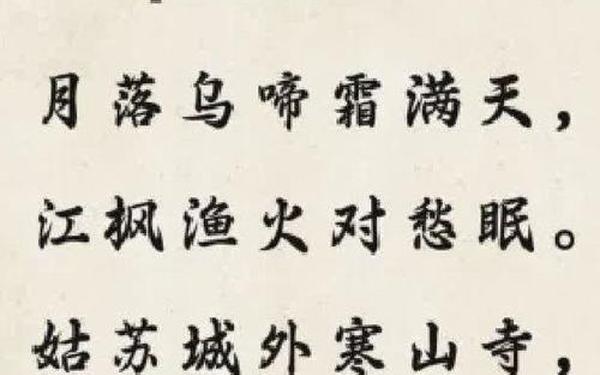 月落乌啼霜满天，
江枫渔火对愁眠。
姑苏城外寒山寺，